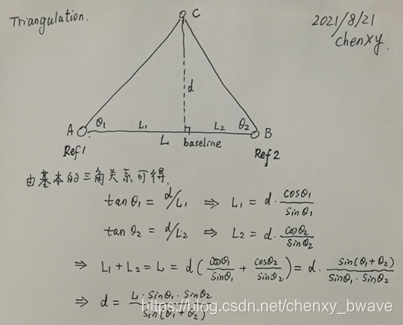 Triangulation.
2021/8/21
chenxy.
C
d
A θ1 L1 L2 θ2 B
Ref1 L baseline Ref2
由基本的三角关系可得.
tanθ1 = d/L1 ⇒ L1 = d · cosθ1/sinθ1
tanθ2 = d/L2 ⇒ L2 = d · cosθ2/sinθ2
⇒ L1 + L2 = L = d (cosθ1/sinθ1 + cosθ2/sinθ2) = d · sin(θ1+θ2)/sinθ1·sinθ2
⇒ d = L·sinθ1·sinθ2/sin(θ1+θ2)
https://blog.csdn.net/chenxy_bwave